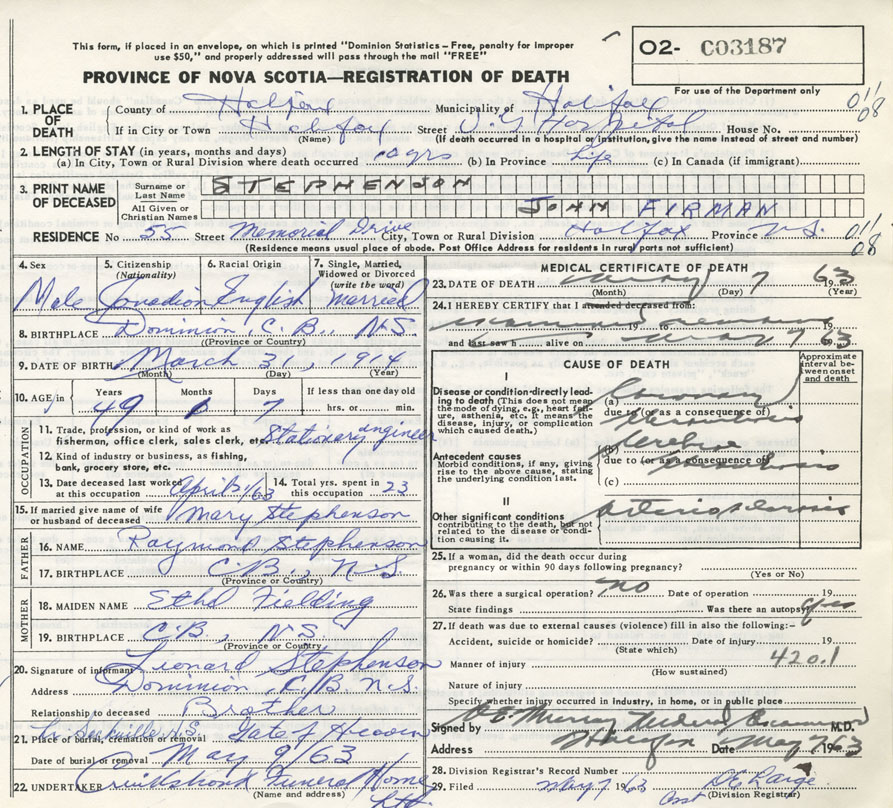 This form, if placed in an envelope, on which is printed "Dominion Statistics – Free, penalty for improper
use $50," and properly addressed will pass through the mail "FREE"
PROVINCE OF NOVA SCOTIA—REGISTRATION OF DEATH
O2- C03187
For use of the Department only
1. PLACE OF DEATH County of Halifax Municipality of Halifax 011/08
If in City or Town Halifax Street V.G. Hospital House No.
(Name) (If death occurred in a hospital or institution, give the name instead of street and number)
2. LENGTH OF STAY (in years, months and days)
(a) In City, Town or Rural Division where death occurred 10 yrs (b) In Province Life (c) In Canada (if immigrant)
3. PRINT NAME OF DECEASED Surname or Last Name STEPHENSON
All Given or Christian Names JOHN FIRMAN
RESIDENCE No 55 Street Memorial Drive City, Town or Rural Division Halifax Province N.S. 011/08
(Residence means usual place of abode. Post Office Address for residents in rural parts not sufficient)
4. Sex 5. Citizenship (Nationality) 6. Racial Origin 7. Single, Married, Widowed or Divorced (write the word)
Male Canadian English Married
8. BIRTHPLACE Dominion, C.B., N.S.
(Province or Country)
9. DATE OF BIRTH March 31, 1914
(Month) (Day) (Year)
10. AGE in Years Months Days If less than one day old
49 7 hrs. or min.
OCCUPATION
11. Trade, profession, or kind of work as
fisherman, office clerk, sales clerk, etc. Stationary engineer
12. Kind of industry or business, as fishing,
bank, grocery store, etc.
13. Date deceased last worked at this occupation April /63 14. Total yrs. spent in this occupation 23
15. If married give name of wife or husband of deceased Mary Stephenson
FATHER
16. NAME Raymond Stephenson
17. BIRTHPLACE C.B., N.S.
(Province or Country)
MOTHER
18. MAIDEN NAME Ethel Fielding
19. BIRTHPLACE C.B., N.S.
(Province or Country)
20. Signature of informant Leonard Stephenson
Address Dominion, C.B. N.S.
Relationship to deceased Brother
21. Place of burial, cremation or removal Sackville N.S. Gate of Heaven
Date of burial or removal May 9/63
22. UNDERTAKER Cruikshank Funeral Home
(Name and address) Ltd.
MEDICAL CERTIFICATE OF DEATH
23. DATE OF DEATH May 7 1963
(Month) (Day) (Year)
24. I HEREBY CERTIFY that I attended deceased from:
examined remains 19 to 19
and last saw h alive on May 7 1963
CAUSE OF DEATH
Approximate interval between onset and death
I
Disease or condition directly leading to death (This does not mean the mode of dying, e.g., heart failure, asthenia, etc. It means the disease, injury, or complication which caused death.)
(a) Coronary
due to (or as a consequence of)
Thrombosis
Antecedent causes
Morbid conditions, if any, giving rise to the above cause, stating the underlying condition last.
(b)
due to (or as a consequence of)
(c)
II
Other significant conditions
contributing to the death, but not related to the disease or condition causing it.
Arteriosclerosis
25. If a woman, did the death occur during
pregnancy or within 90 days following pregnancy?
(Yes or No)
26. Was there a surgical operation? no Date of operation 19
State findings Was there an autopsy? yes
27. If death was due to external causes (violence) fill in also the following:–
Accident, suicide or homicide? Date of injury 19
(State which)
Manner of injury 420.1
(How sustained)
Nature of injury
Specify whether injury occurred in industry, in home, or in public place
Signed by Murray Medical Examiner M.D.
Address Halifax Date May 7 1963
28. Division Registrar's Record Number
29. Filed May 7 1963
(Division Registrar)